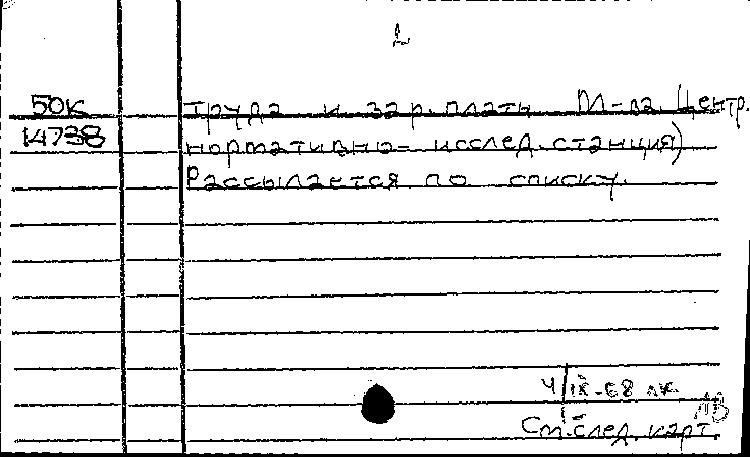 2
50К
14738
труда и зар.платы М-ва. Центр.
нормативно-исслед.станция)
Рассылается по списку.
4/IX-68 лк.
См.след.карт.